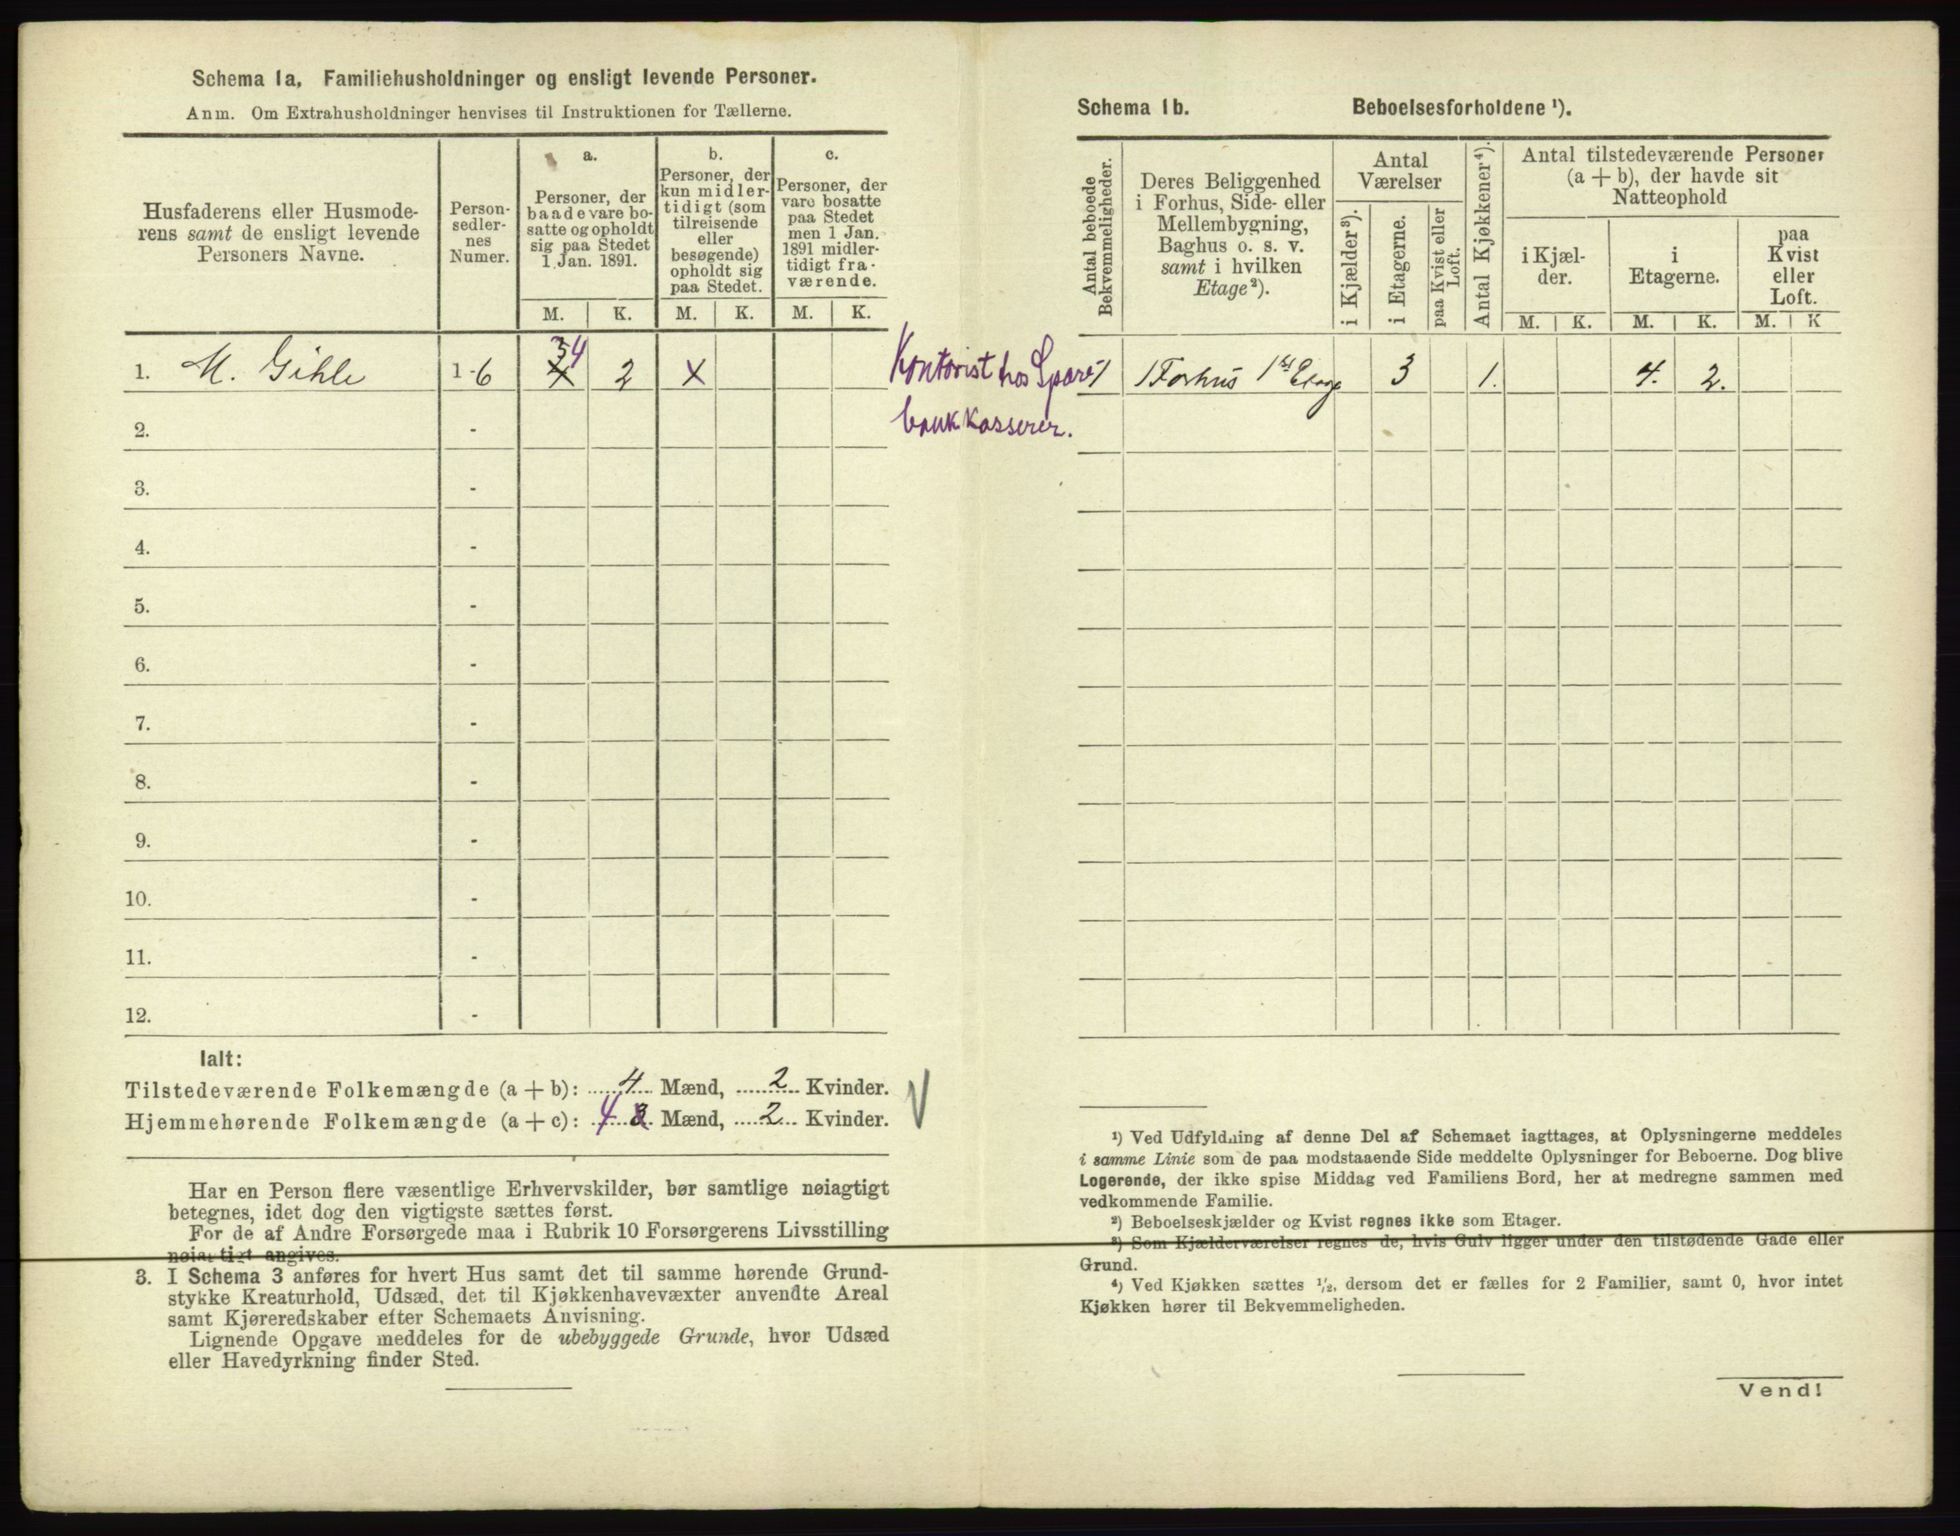 Schema 1a, Familiehusholdninger og ensligt levende Personer.
Anm. Om Extrahusholdninger henvises til Instruktionen for Tællerne.
Husfaderens eller Husmode-
rens samt de ensligt levende
Personers Navne.
Person-
sedler-
nes
Numer.
a.
Personer, der
baade vare bo-
satte og opholdt
sig paa Stedet
1. Jan. 1891.
b.
Personer, der
kun midler-
tidigt (som
tilreisende
eller
besøgende)
opholdt sig
paa Stedet.
c.
Personer, der
vare bosatte
paa Stedet
men 1 Jan.
1891 midler-
tidigt fra-
værende.
M. K. M. K. M. K.
1. M. Gihle 1-6 34 2 x
Kontorist hos Spare-
bankkasserer.
2. -
3. -
4. -
5. -
6. -
7. -
8. -
9. -
10. -
11. -
12. -
Ialt:
Tilstedeværende Folkemængde (a + b): 4 Mænd, 2 Kvinder.
Hjemmehørende Folkemængde (a + c): 4 3 Mænd, 2 Kvinder.
Har en Person flere væsentlige Erhvervskilder, bør samtlige nøiagtigt
betegnes, idet dog den vigtigste sættes først.
For de af Andre Forsørgede maa i Rubrik 10 Forsørgerens Livsstilling
nøiagtigt angives.
3. I Schema 3 anføres for hvert Hus samt det til samme hørende Grund-
stykke Kreaturhold, Udsæd, det til Kjøkkenhavevæxter anvendte Areal
samt Kjøreredskaber efter Schemaets Anvisning.
Lignende Opgave meddeles for de ubebyggede Grunde, hvor Udsæd
eller Havedyrkning finder Sted.
Schema 1b. Beboelsesforholdene ¹).
Antal beboede
Bekvemmeligheder.
Deres Beliggenhed
i Forhus, Side- eller
Mellembygning,
Baghus o. s. v.
samt i hvilken
Etage²).
Antal
Værelser
i Kjælder³).
i Etagerne.
paa Kvist eller
Loft.
Antal Kjøkkener⁴).
Antal tilstedeværende Personer
(a + b), der havde sit
Natteophold
i Kjæl-
der.
i
Etagerne.
paa
Kvist
eller
Loft.
M. K. M. K. M. K
1 1 Forhus 1ste Etage 3 1. 4. 2.
¹) Ved Udfyldning af denne Del af Schemaet iagttages, at Oplysningerne meddeles
i samme Linie som de paa modstaaende Side meddelte Oplysninger for Beboerne. Dog blive
Logerende, der ikke spise Middag ved Familiens Bord, her at medregne sammen med
vedkommende Familie.
²) Beboelseskjælder og Kvist regnes ikke som Etager.
³) Som Kjælderværelser regnes de, hvis Gulv ligger under den tilstødende Gade eller
Grund.
⁴) Ved Kjøkken sættes ¹/₂, dersom det er fælles for 2 Familier, samt 0, hvor intet
Kjøkken hører til Bekvemmeligheden.
Vend!